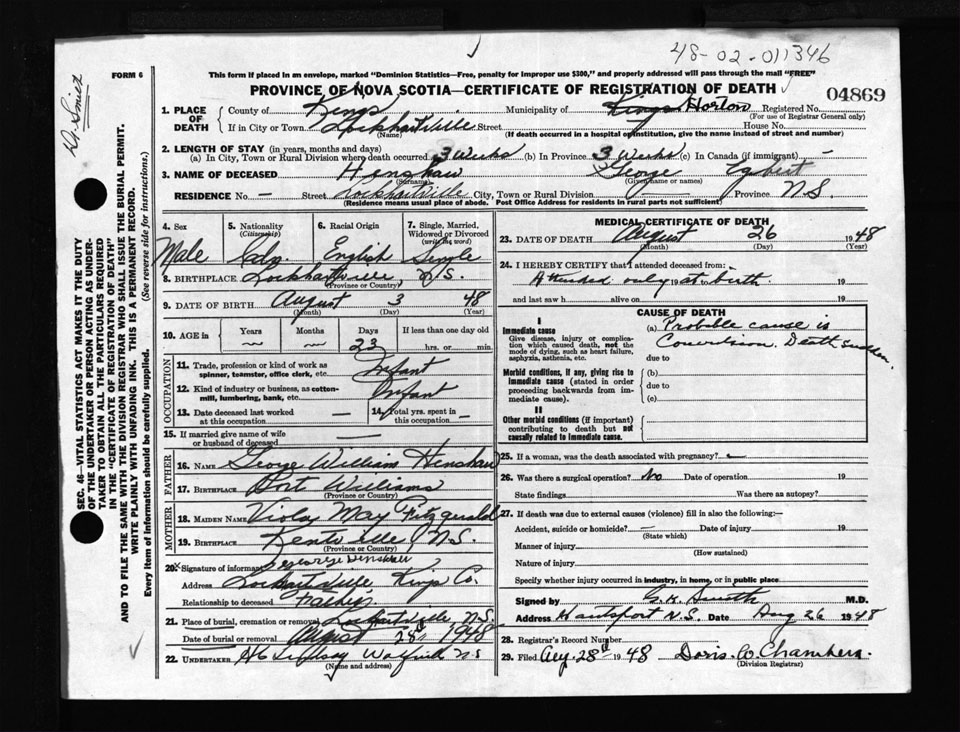 48-02-011346
Dr. Smith
FORM 6
This form if placed in an envelope, marked "Dominion Statistics—Free, penalty for improper use $300," and properly addressed will pass through the mail "FREE"
PROVINCE OF NOVA SCOTIA—CERTIFICATE OF REGISTRATION OF DEATH
04869
1. PLACE OF DEATH
County of Kings Municipality of Kings Horton Registered No.
(For use of Registrar General only)
If in City or Town Lockhartville Street House No.
(Name) (If death occurred in a hospital or institution, give the name instead of street and number)
2. LENGTH OF STAY (in years, months and days)
(a) In City, Town or Rural Division where death occurred 3 Weeks (b) In Province 3 Weeks (c) In Canada (if immigrant) —
3. NAME OF DECEASED Henshaw George Egbert
(Surname) (Given name or names)
RESIDENCE No. — Street Lockhartville City, Town or Rural Division Province N.S.
(Residence means usual place of abode. Post Office Address for residents in rural parts not sufficient)
4. Sex Male
5. Nationality (Citizenship) Cdn.
6. Racial Origin English
7. Single, Married, Widowed or Divorced (write the word) Single
8. BIRTHPLACE Lockhartville N.S.
(Province or Country)
9. DATE OF BIRTH August 3 48
(Month) (Day) (Year)
10. AGE in Years Months Days If less than one day old
23 hrs. or min.
OCCUPATION
11. Trade, profession or kind of work as spinner, teamster, office clerk, etc. Infant
12. Kind of industry or business, as cotton-mill, lumbering, bank, etc. Infant
13. Date deceased last worked at this occupation —
14. Total yrs. spent in this occupation —
15. If married give name of wife or husband of deceased —
FATHER
16. NAME George William Henshaw
17. BIRTHPLACE Port Williams
(Province or Country)
MOTHER
18. MAIDEN NAME Viola May Fitzgerald
19. BIRTHPLACE Kentville N.S.
(Province or Country)
20. Signature of informant George Henshaw
Address Lockhartville, Kings Co.
Relationship to deceased Father
21. Place of burial, cremation or removal Lockhartville N.S.
Date of burial or removal August 28th 1948
22. UNDERTAKER Lindsay N.S
(Name and address)
MEDICAL CERTIFICATE OF DEATH
23. DATE OF DEATH August 26 1948
(Month) (Day) (Year)
24. I HEREBY CERTIFY that I attended deceased from:
Attended only 19 at birth. 19
and last saw h alive on 19
CAUSE OF DEATH
I
Immediate cause
Give disease, injury or complication which caused death, not the mode of dying, such as heart failure, asphyxia, asthenia, etc.
(a) Probable cause is
Convulsion. Death sudden
due to
Morbid conditions, if any, giving rise to immediate cause (stated in order proceeding backwards from immediate cause).
(b)
due to
(c)
II
Other morbid conditions (if important) contributing to death but not causally related to immediate cause.
25. If a woman, was the death associated with pregnancy? —
26. Was there a surgical operation? No Date of operation 19
State findings Was there an autopsy?
27. If death was due to external causes (violence) fill in also the following:—
Accident, suicide or homicide? — Date of injury 19
(State which)
Manner of injury
(How sustained)
Nature of injury
Specify whether injury occurred in industry, in home, or in public place
Signed by Smith M.D.
Address Hantsport N.S. Date Aug 26 1948
28. Registrar's Record Number
29. Filed Aug. 28th 1948 Doris W. Chambers.
(Division Registrar)
SEC. 46—VITAL STATISTICS ACT MAKES IT THE DUTY
OF THE UNDERTAKER OR PERSON ACTING AS UNDERTAKER TO OBTAIN ALL THE PARTICULARS REQUIRED
IN THE "CERTIFICATE OF REGISTRATION OF DEATH"
AND TO FILE THE SAME WITH THE DIVISION REGISTRAR WHO SHALL ISSUE THE BURIAL PERMIT.
WRITE PLAINLY WITH UNFADING INK. THIS IS A PERMANENT RECORD.
Every item of information should be carefully supplied. (See reverse side for instructions.)